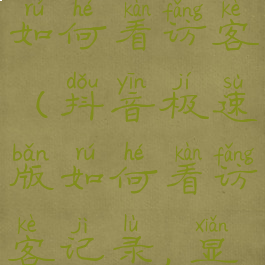 rú hé kàn fǎng kè
如何看访客
dǒu yīn jí sù
（抖音极速
bǎn rú hé kàn fǎng
版如何看访
kè jì lù xiǎn
客记录,显